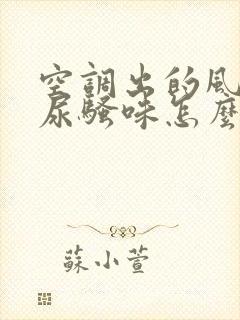 空調出的風
尿騷味怎麼
蘇小萱